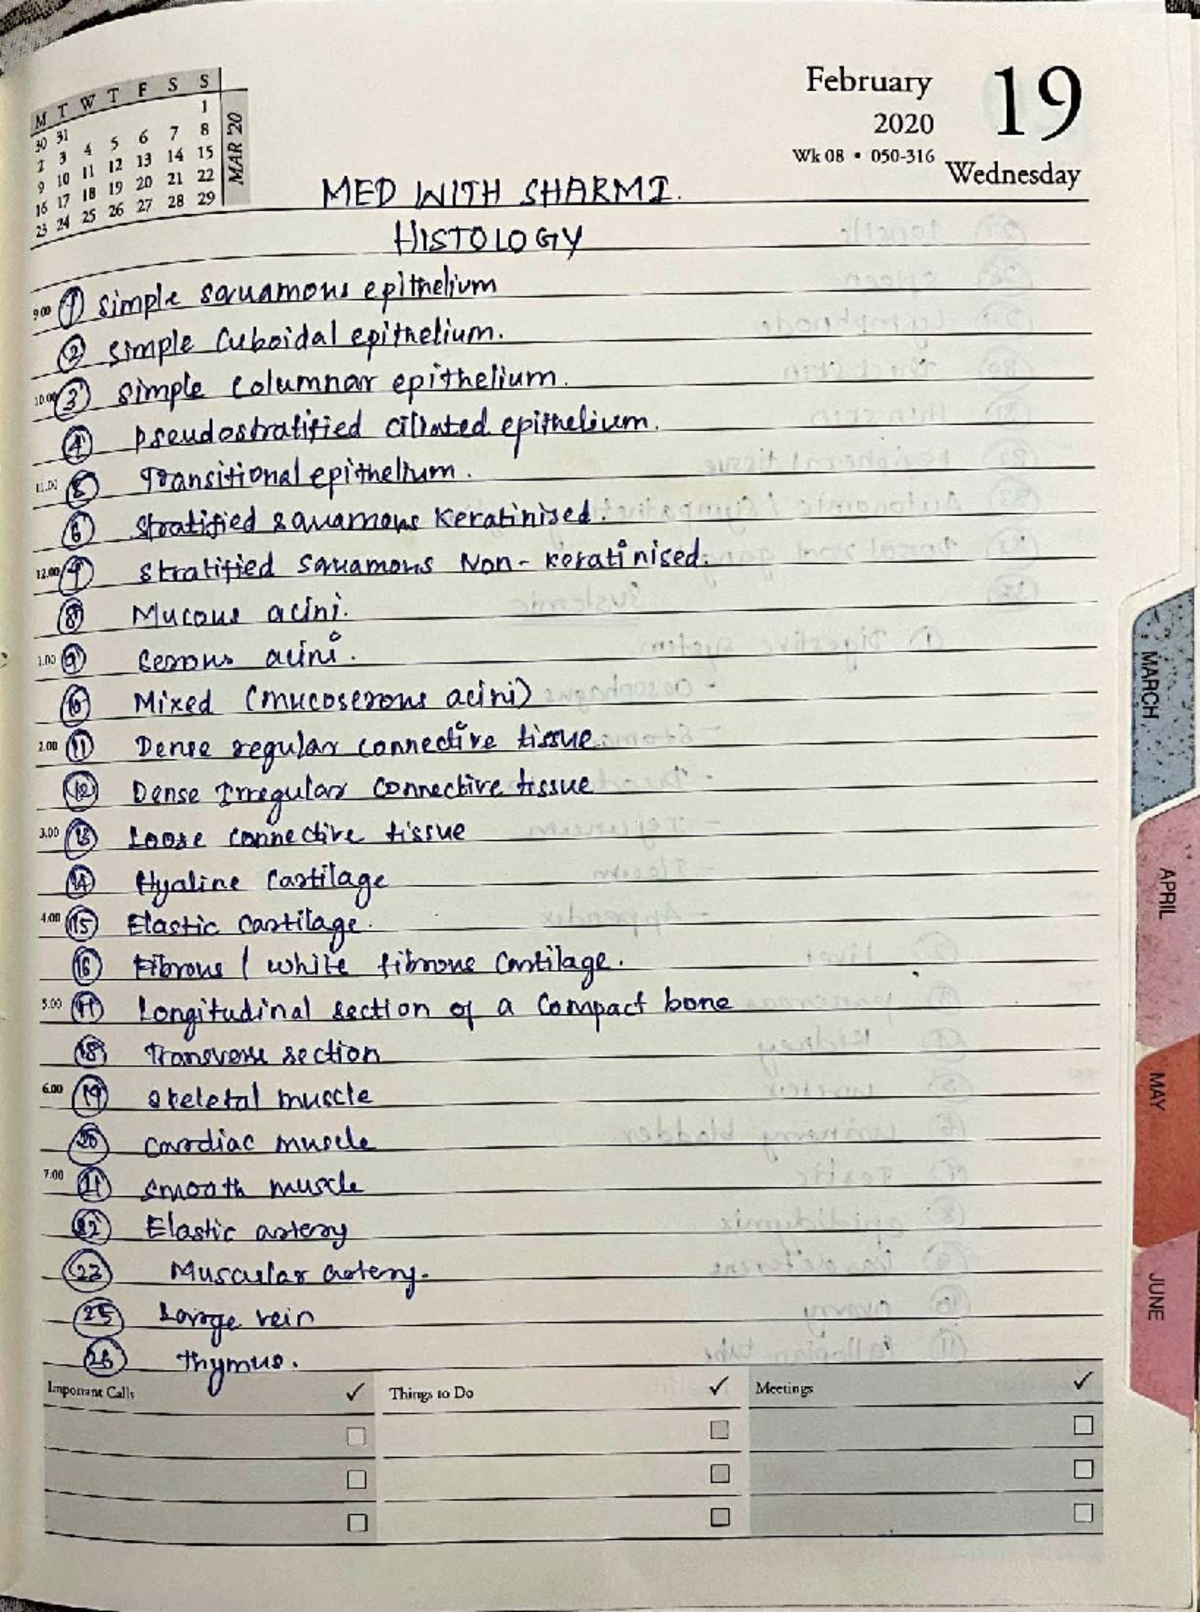 M T W T F S S
1
30 31
2 3 4 5 6 7 8
9 10 11 12 13 14 15
16 17 18 19 20 21 22
23 24 25 26 27 28 29
MAR '20
February
2020
Wk 08 • 050-316
19
Wednesday
MED WITH SHARMI.
HISTOLOGY
9.00 1 Simple squamous epithelium
2 Simple Cuboidal epithelium.
10.00 3 Simple columnar epithelium.
4 Pseudostratified ciliated epithelium.
11.00 5 Transitional epithelium.
6 Stratified squamous Keratinised.
12.00 7 Stratified Squamous Non-keratinised.
8 Mucous acini.
1.00 9 Serous acini.
10 Mixed (mucoserous acini)
2.00 11 Dense regular connective tissue.
12 Dense Irregular Connective tissue
3.00 13 Loose connective tissue
14 Hyaline Cartilage
4.00 15 Elastic Cartilage.
16 Fibrous / white fibrous Cartilage.
5.00 17 Longitudinal section of a Compact bone
18 Transverse section
6.00 19 Skeletal muscle
20 Cardiac muscle
7.00 21 Smooth muscle
22 Elastic artery
23 Muscular artery.
25 Large vein
26 Thymus.
Important Calls ✓ Things to Do ✓ Meetings ✓
MARCH
APRIL
MAY
JUNE